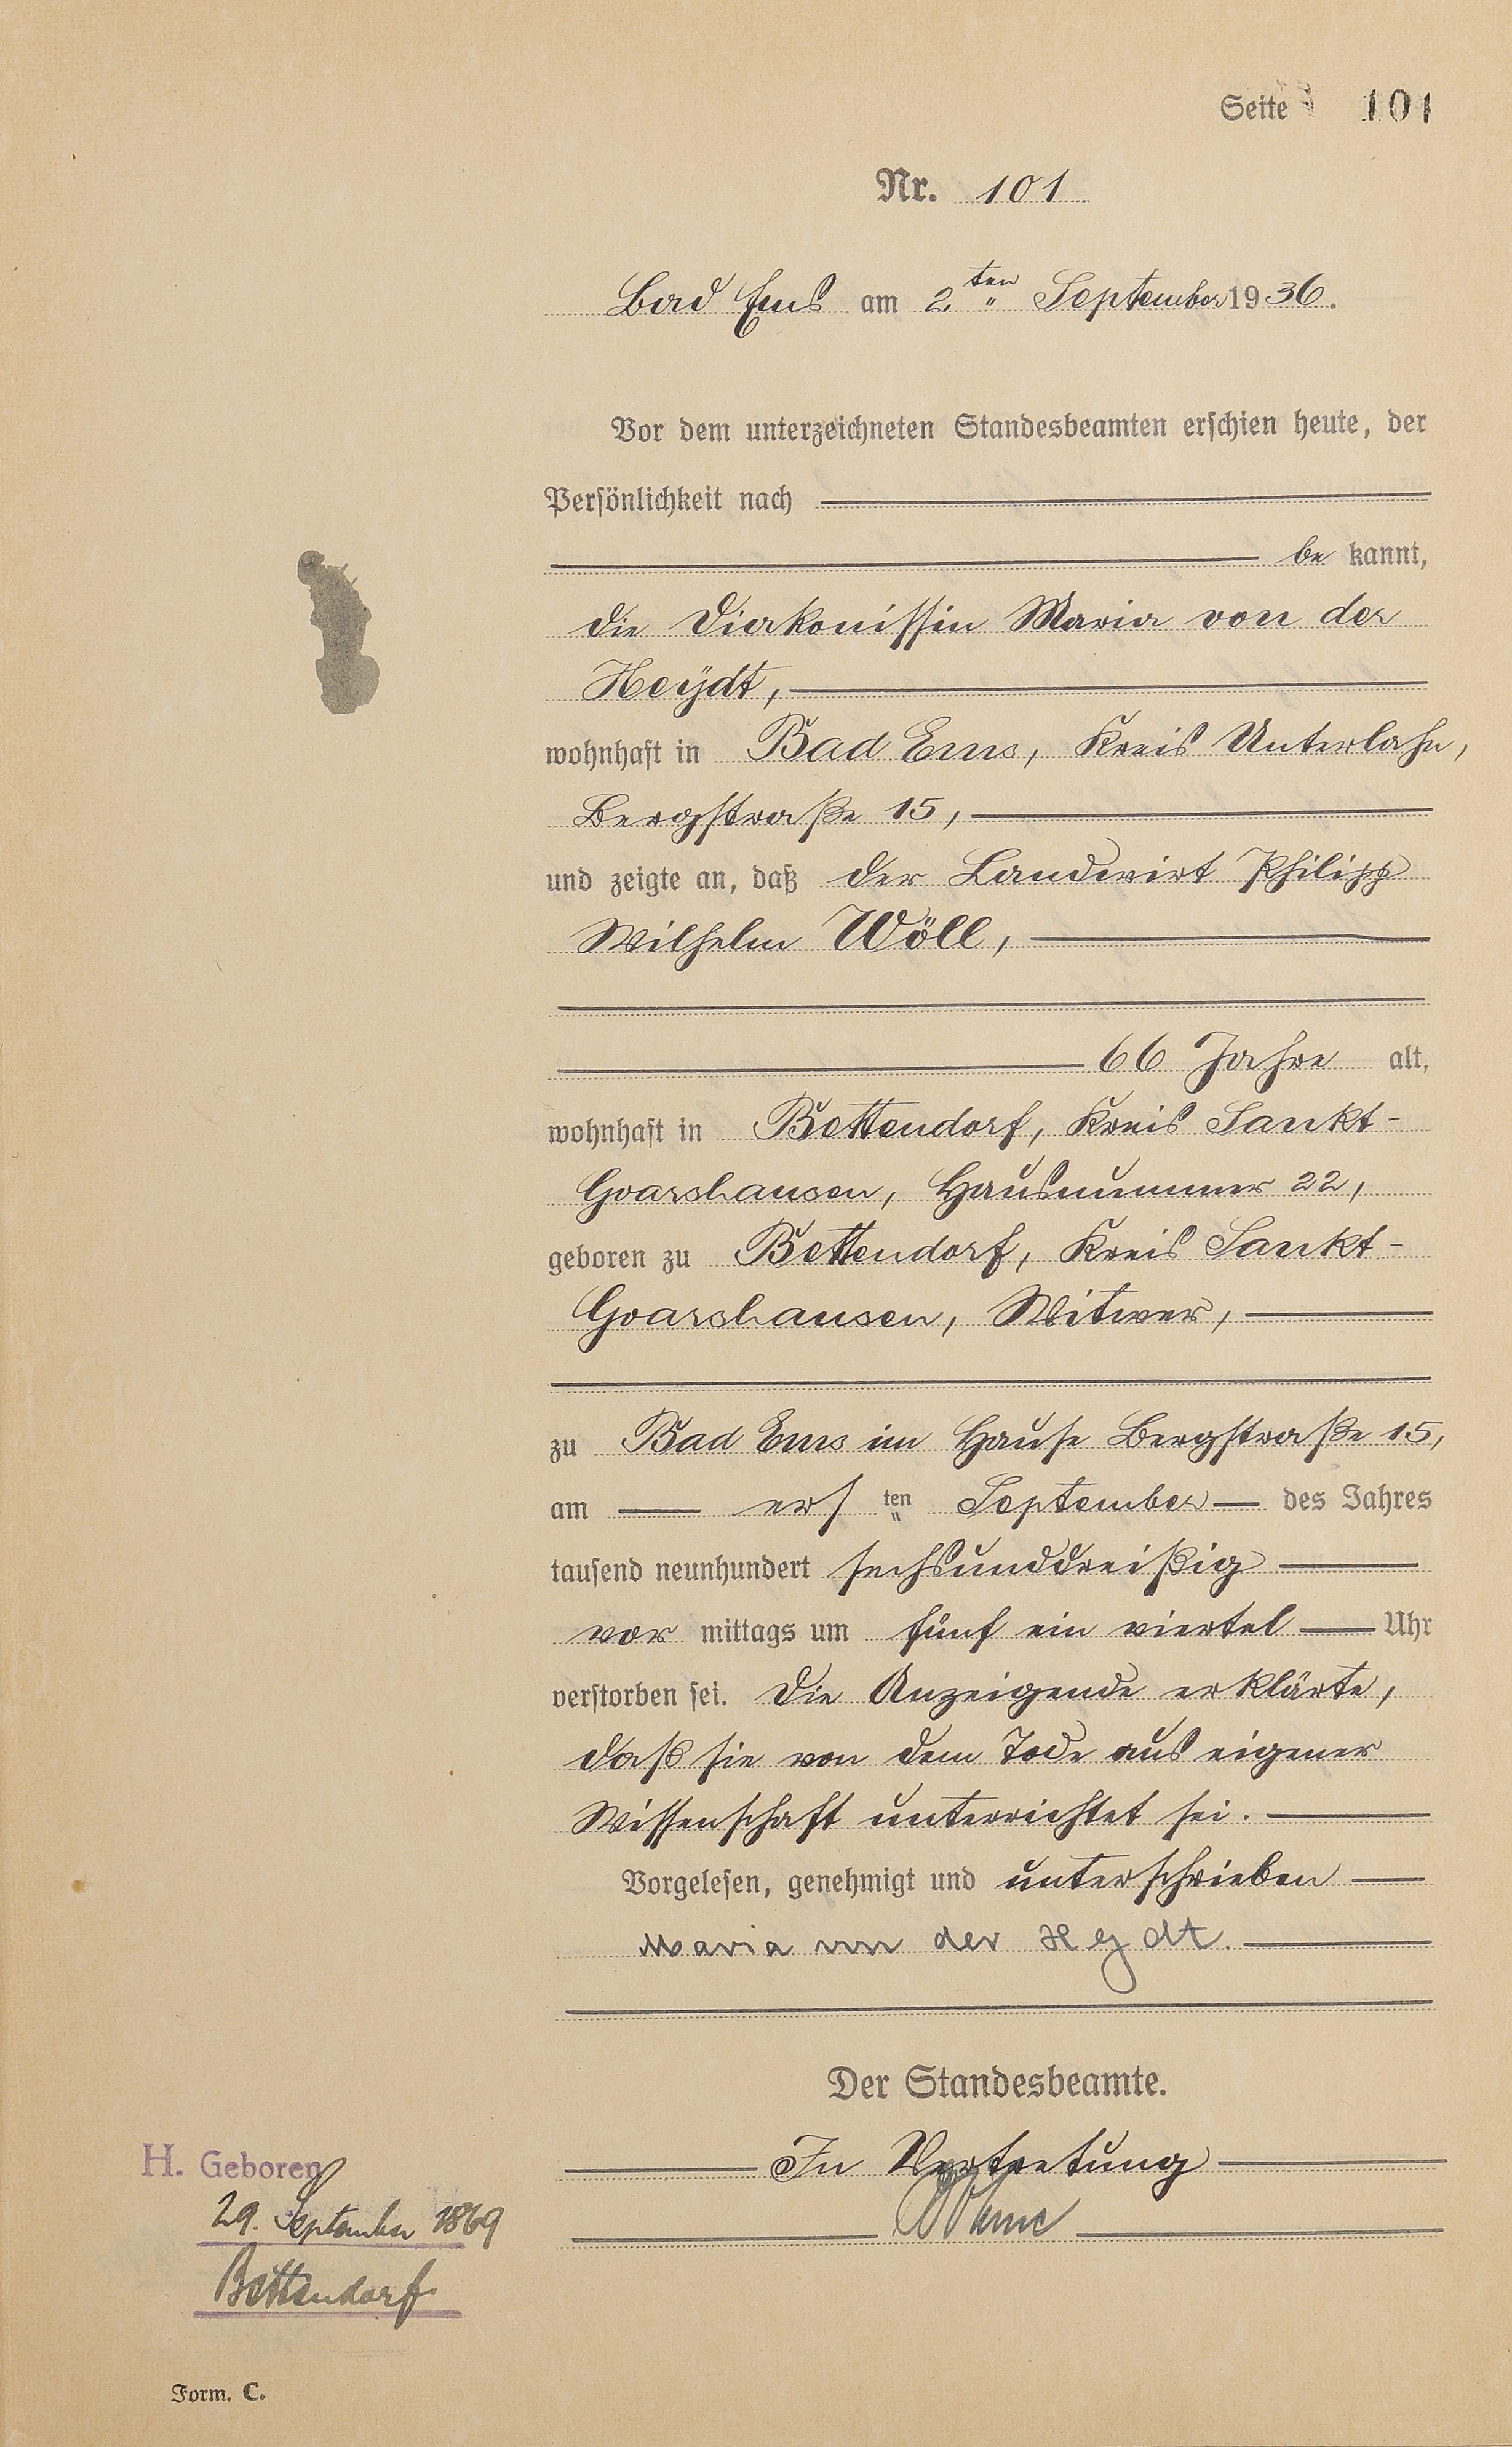 Seite 101
Nr. 101
Bad Ems am 2ten September 1936.
Vor dem unterzeichneten Standesbeamten erschien heute, der
Persönlichkeit nach
be kannt,
die Diakonissin Maria von der
Heÿdt,
wohnhaft in Bad Ems, Kreis Unterlahn,
Bergstraße 15,
und zeigte an, daß der Landwirt Philipp
Wilhelm Wöll,
66 Jahre alt,
wohnhaft in Bettendorf, Kreis Sankt-
Goarshausen, Hausnummer 22,
geboren zu Bettendorf, Kreis Sankt-
Goarshausen, Witwer,
zu Bad Ems im Hause Bergstraße 15,
am ersten September des Jahres
tausend neunhundert sechsunddreißig
vor mittags um fünf ein viertel Uhr
verstorben sei. Die Anzeigende erklärte,
daß sie von dem Tode aus eigener
Wissenschaft unterrichtet sei.
Vorgelesen, genehmigt und unterschrieben
Maria von der Heydt.
Der Standesbeamte.
In Vertretung
H. Geboren
29. September 1869
Bettendorf
Form. C.